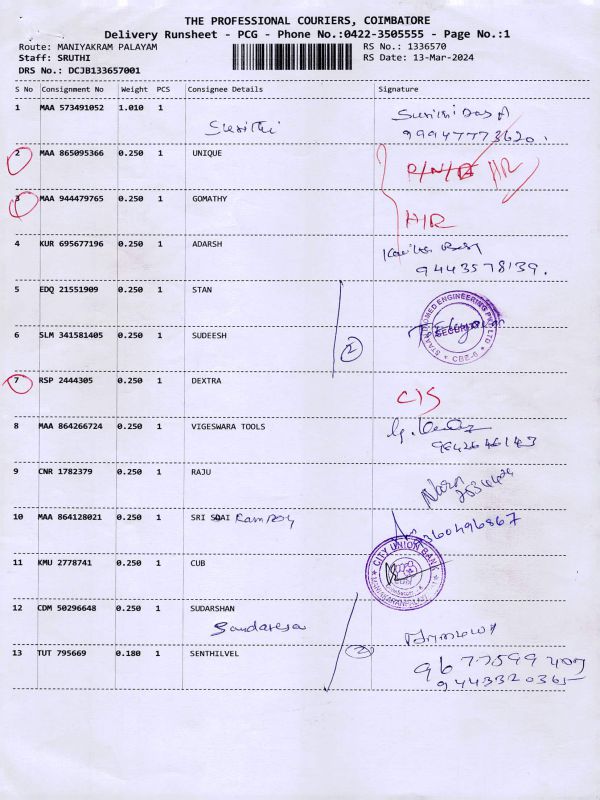 THE PROFESSIONAL COURIERS, COIMBATORE
Delivery Runsheet - PCG - Phone No.:0422-3505555 - Page No.:1
Route: MANIYAKRAM PALAYAM RS No.: 1336570
Staff: SRUTHI RS Date: 13-Mar-2024
DRS No.: DCJB133657001
S No Consignment No Weight PCS Consignee Details Signature
1 MAA 573491052 1.010 1
99947773620.
2 MAA 865095366 0.250 1 UNIQUE
3 MAA 944479765 0.250 1 GOMATHY H/R
4 KUR 695677196 0.250 1 ADARSH
9443578139.
5 EDQ 21551909 0.250 1 STAN
6 SLM 341581405 0.250 1 SUDEESH 2 SECURITY
7 RSP 2444305 0.250 1 DEXTRA C/S
8 MAA 864266724 0.250 1 VIGESWARA TOOLS
9 CNR 1782379 0.250 1 RAJU
10 MAA 864128021 0.250 1 SRI SDAI
9360496867
11 KMU 2778741 0.250 1 CUB CITY UNION BANK
12 CDM 50296648 0.250 1 SUDARSHAN
13 TUT 795669 0.180 1 SENTHILVEL 2
9443320365